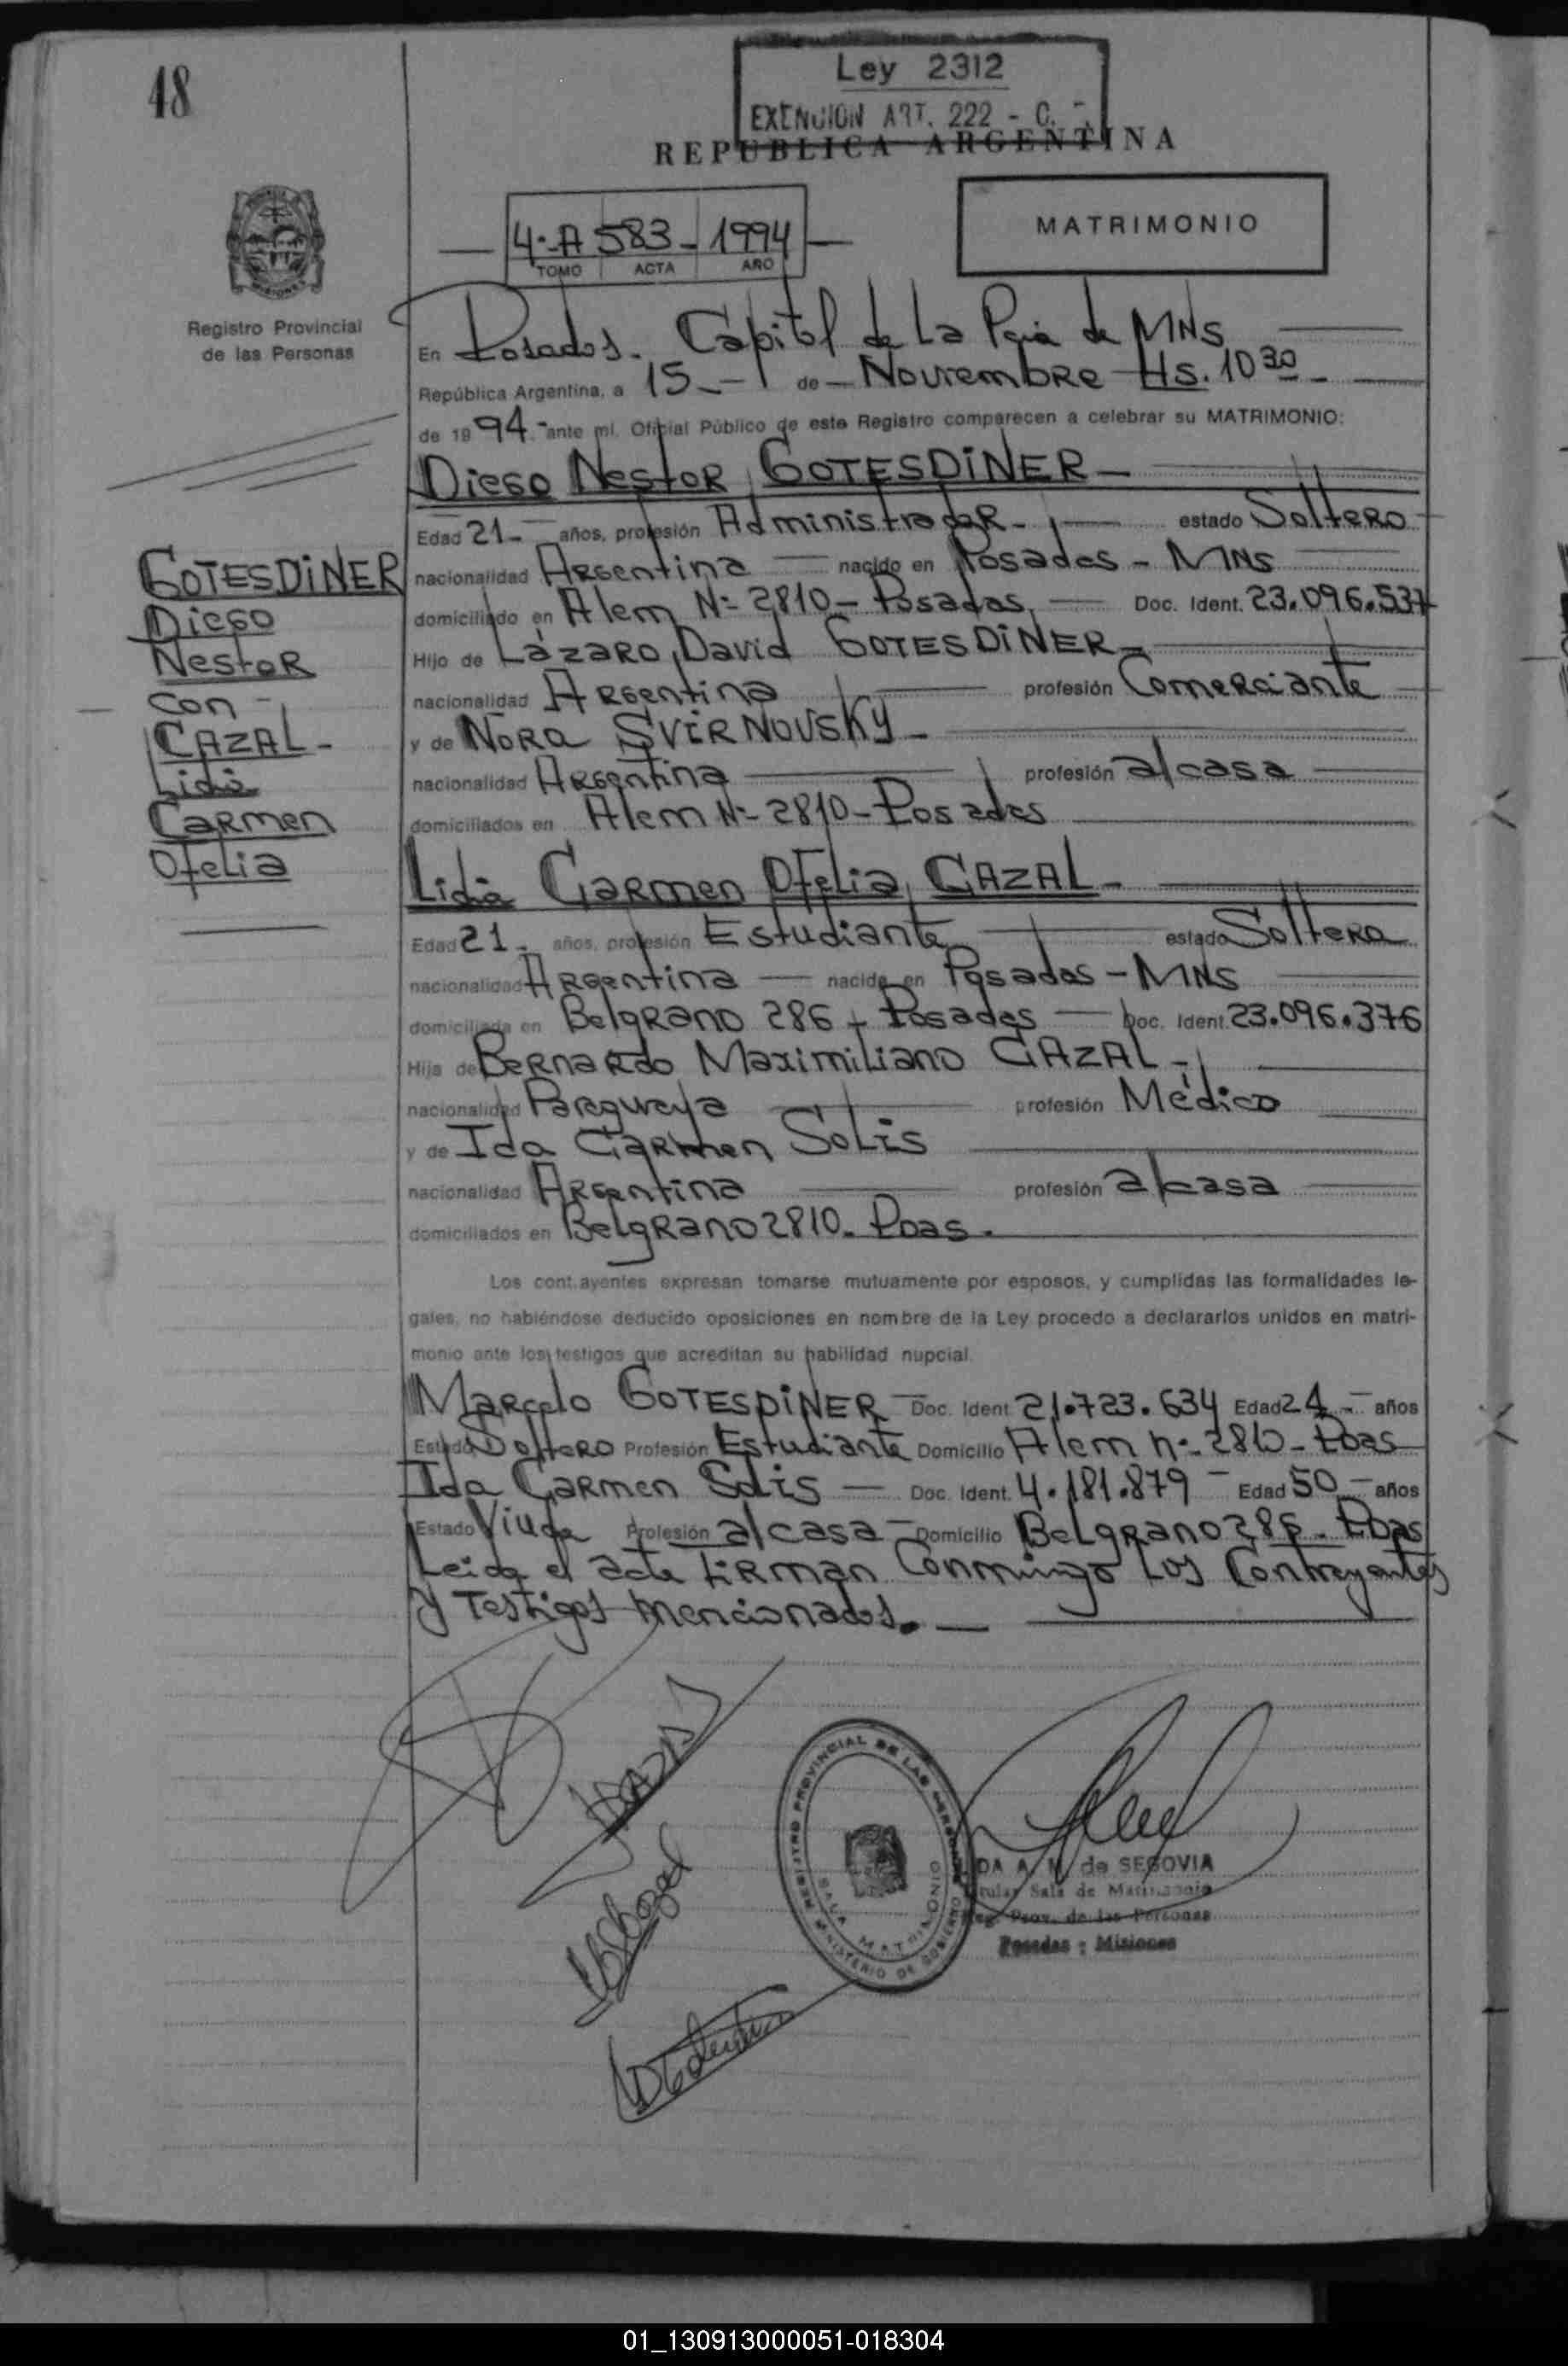 48
Ley 2312
EXENCION ART. 222 - C.
REPUBLICA ARGENTINA
4º-A 583- 1994
TOMO ACTA AÑO
MATRIMONIO
Registro Provincial
de las Personas
En Posadas. Capital de La Pcia de MNS
República Argentina, a 15 de Noviembre Hs. 10 30
de 1994 ante mí, Oficial Público de este Registro comparecen a celebrar su MATRIMONIO:
Diego Nestor GOTESDINER
Edad 21 años, profesión Administrador estado Soltero
nacionalidad Argentina nacido en Posadas - MNS
domiciliado en Alem Nº 2810 - Posadas Doc. Ident. 23.096.537
Hijo de Lázaro David GOTESDINER
nacionalidad Argentina profesión Comerciante
y de Nora SVIRNOVSKY
nacionalidad Argentina profesión a/casa
domiciliados en Alem Nº 2810 - Posadas
GOTESDINER
Diego
Nestor
con -
CAZAL -
Lidia
Carmen
Ofelia
Lidia Carmen Ofelia CAZAL -
Edad 21 años, profesión Estudiante estado Soltera
nacionalidad Argentina nacida en Posadas - MNS
domiciliada en Belgrano 286 - Posadas Doc. Ident. 23.096.376
Hija de Bernardo Maximiliano CAZAL -
nacionalidad Paraguaya profesión Médico
y de Ida Carmen Solis
nacionalidad Argentina profesión a/casa
domiciliados en Belgrano 2810 - Pdas.
Los contrayentes expresan tomarse mutuamente por esposos, y cumplidas las formalidades le-
gales, no habiéndose deducido oposiciones en nombre de la Ley procedo a declararlos unidos en matri-
monio ante los testigos que acreditan su habilidad nupcial.
Marcelo GOTESDINER Doc. Ident 21.723.634 Edad 24 años
Estado Soltero Profesión Estudiante Domicilio Alem nº 2810 - Pdas
Ida Carmen Solis Doc. Ident. 4.181.879 Edad 50 años
Estado Viuda Profesión a/casa Domicilio Belgrano 286 - Pdas
Leida el acta firman conmigo los contrayentes
y testigos mencionados.
REGISTRO PROVINCIAL DE LAS PERSONAS
SALA MATRIMONIO
MINISTERIO DE GOBIERNO
DA A. M. de SEGOVIA
Titular Sala de Matrimonio
Reg. Prov. de las Personas
Posadas - Misiones
01_130913000051-018304